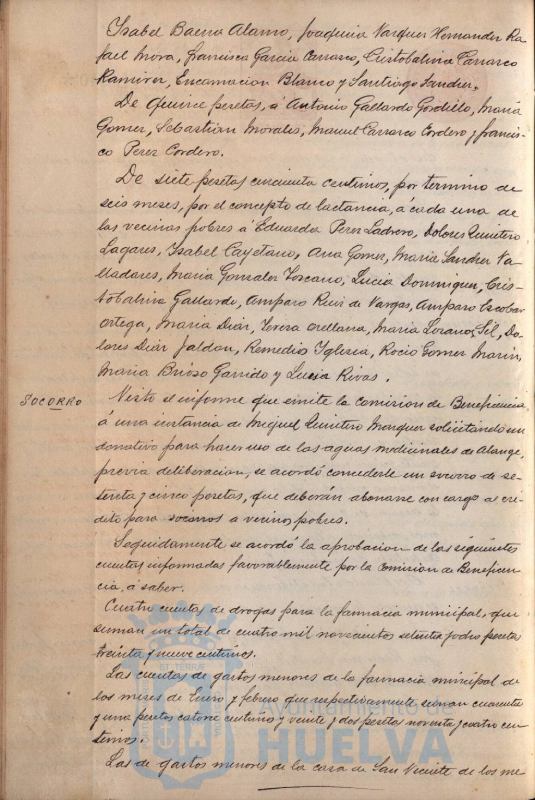 Isabel Baena Alamo, Joaquina Vazquez Hernandez Ra-
fael Mora, Francisca Garcia Carrasco, Cristobalina Carrasco
Ramirez, Encarnacion Blanco y Santiago Sandez.
De Quince pesetas, á Antonio Gallardo Gordillo, Maria
Gomez, Sebastian Morales, Manuel Carrasco Cordero y Francis-
co Perez Cordero.
De siete pesetas cincuenta centimos, por termino de
seis meses, por el concepto de lactancia, á cada una de
las vecinas pobres á Eduarda Perez Ladrero, Dolores Quintero
Lagares, Isabel Cayetano, Ana Gomez, Maria Sandez Va-
lladares, Maria Gonzalez Toscano, Lucia Dominguez, Cris-
tobalina Gallardo, Amparo Ruiz de Vargas, Amparo Escobar
Ortega, Maria Diaz, Teresa Orellana, Maria Lozano Gil, Do-
lores Diaz Jaldon, Remedio Iglesia, Rocio Gomez Marin,
Maria Brioso Garrido y Lucia Rivas.
SOCORRO
Visto el informe que emite la comision de Beneficencia
á una instancia de Miguel Quintero Marquez solicitando un
donativo para hacer uso de las aguas medicinales de Alange,
previa deliberacion, se acordó concederle un socorro de se-
tenta y cinco pesetas, que deborán abonarse con cargo al cre-
dito para socorros a vecinos pobres.
Seguidamente se acordó la aprobacion de las siguientes
cuentas informadas favorablemente por la Comision de Beneficen-
cia, á saber.
Cuatro cuentas de drogas para la farmacia municipal, que
suman un total de cuatro mil novecientas setenta y ocho pesetas
treinta y nueve centimos.
Las cuentas de gastos menores de la farmacia municipal de
los meses de Enero y febrero que respectivamente suman cuarenta
y una pesetas catorce centimos y veinte y dos pesetas noventa y cuatro cen-
timos.
Las de gastos menores de la casa de San Vicente de los me-
Ayuntamiento de
HUELVA